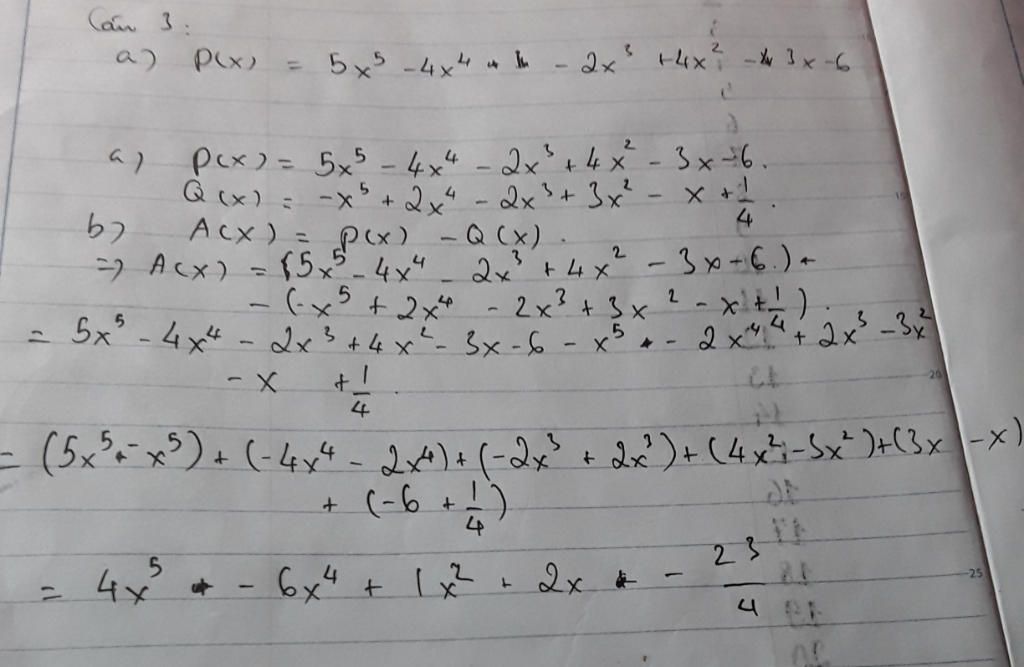 Câu 3:
a) P(x) = 5x⁵ - 4x⁴ - 2x³ + 4x² - 3x - 6
a) P(x) = 5x⁵ - 4x⁴ - 2x³ + 4x² - 3x - 6.
Q(x) = -x⁵ + 2x⁴ - 2x³ + 3x² - x + 1/4.
b) A(x) = P(x) - Q(x).
=> A(x) = (5x⁵ - 4x⁴ - 2x³ + 4x² - 3x - 6.)
- (-x⁵ + 2x⁴ - 2x³ + 3x² - x + 1/4).
= 5x⁵ - 4x⁴ - 2x³ + 4x² - 3x - 6 - x⁵ - 2x⁴ + 2x³ - 3x²
- x + 1/4.
= (5x⁵ - x⁵) + (-4x⁴ - 2x⁴) + (-2x³ + 2x³) + (4x² - 3x²) + (3x - x)
+ (-6 + 1/4)
= 4x⁵ - 6x⁴ + 1x² + 2x - 23/4